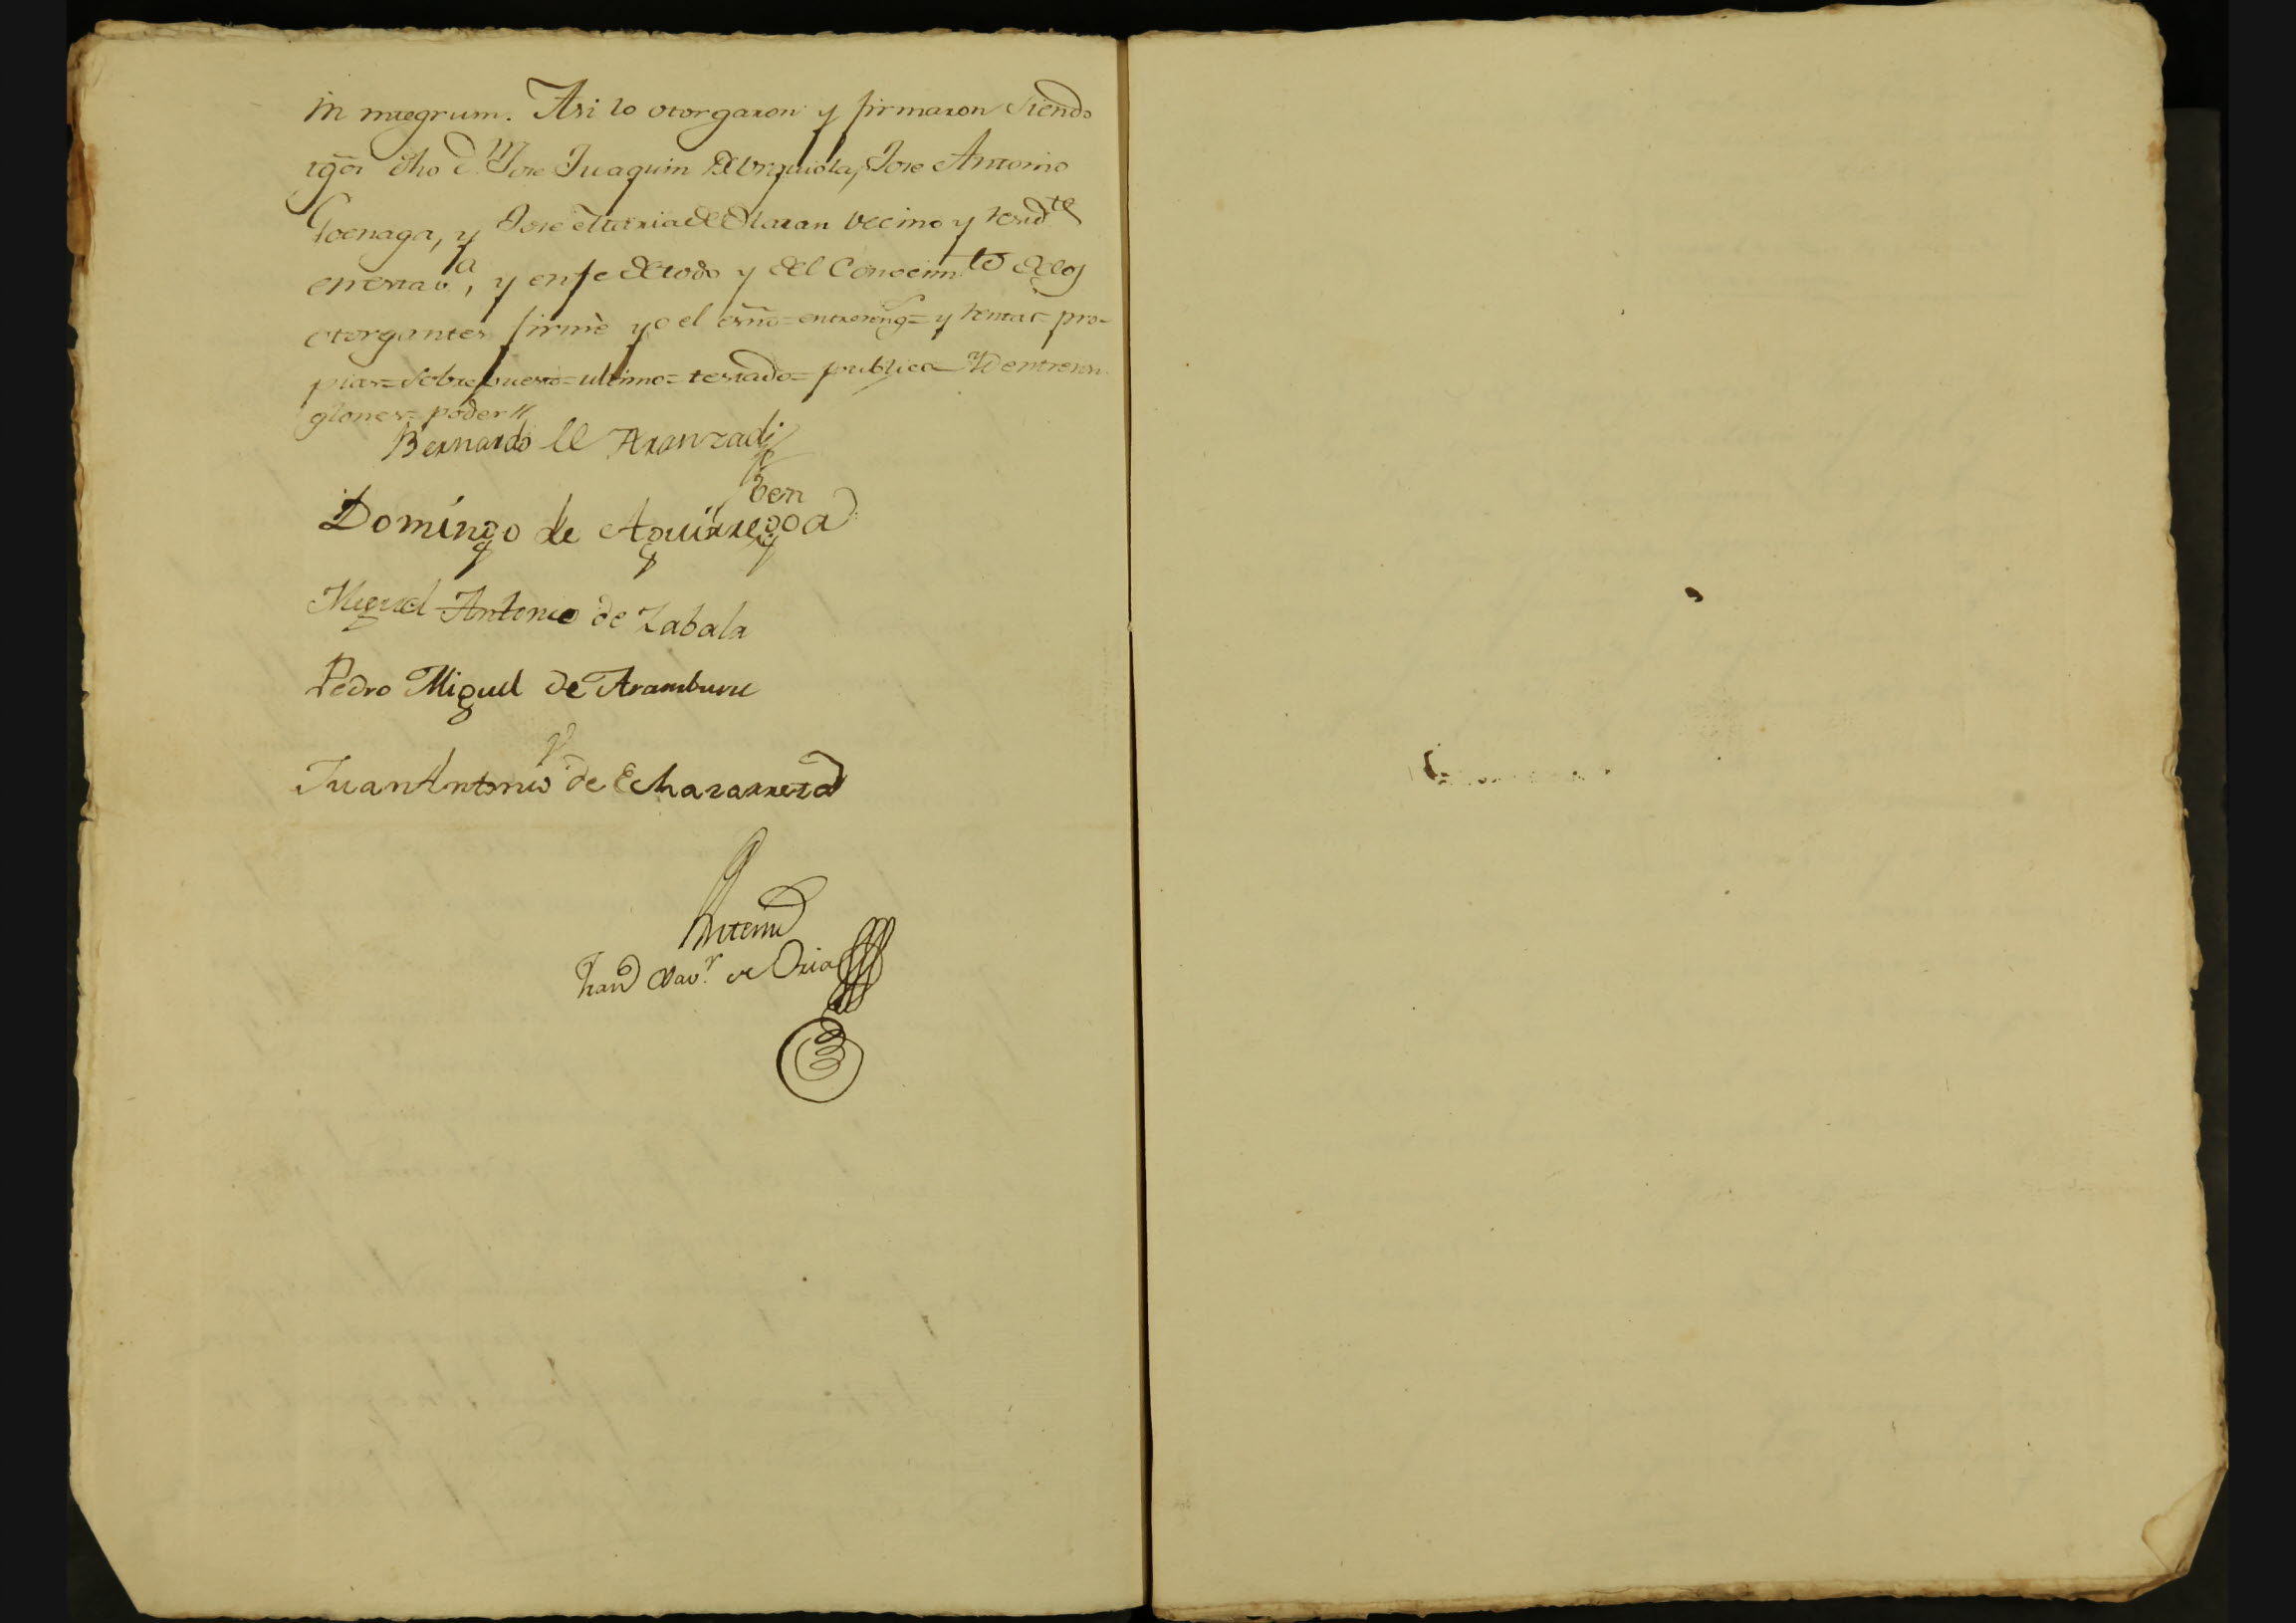 in integrum. Asi lo otorgaron y firmaron siendo
tg̃os dho d.ⁿ Jose Juaquin de Urquiola, Jose Antonio
Goenaga, y Jose Maria de Olazan vecino y resid.te
en esta v.ª, y en fe de todo y del conocim.to de los
otorgantes firmè yo el esño=entrereng.=y rentas=pro-
pias=sobrepuesto=ultimo=testado=publica=Ydentrerен-
glones=poder//
Bernardo de Aranzadi
Domingo de Aguirrebengoa
Miguel Antonio de Zabala
Pedro Miguel de Aramburu
Juan Antonio de Echazarreta
Antemi
Xav.r de Oria